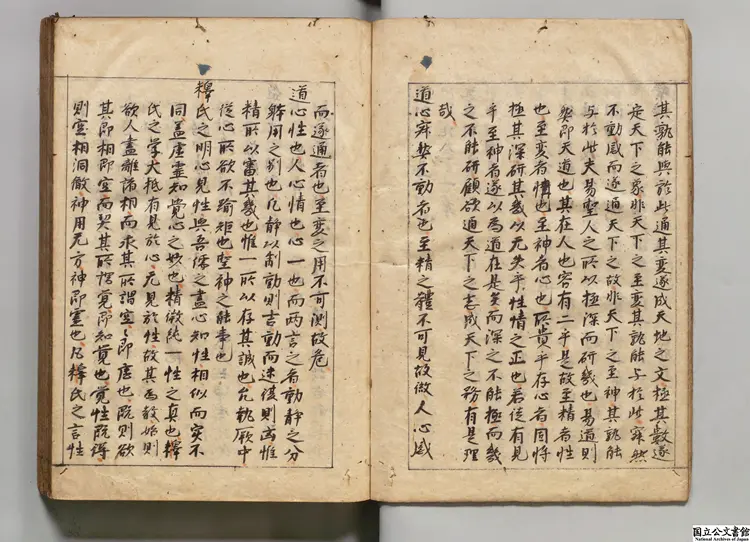 其孰能與於此通其変遂成天地之文極其數遂
定天下之象非天下之至変其孰能与於此寂然
不動感而遂通天下之故非天下之至神其孰能
与於此夫易聖人之所以極深而研幾也易道則
然即天道也其在人也容有二乎是故至精者性
也至変者情也至神者心也所貴乎存心者固将
極其深研其幾以无失乎性情之正也若徒有見
乎至神者遂以為道在是矣而深之不能極而幾
之不能研顧欲通天下之志成天下之務有是理
哉
道心寂然不動者也至精之體不可見故微人心感
而遂通者也至変之用不可測故危
道心性也人心情也心一也而両言之者動静之分
躰用之別也凡静以制動則吉動而迷復則凶惟
精所以審其幾也惟一所以存其誠也允執厥中
従心所欲不踰矩也聖神之能事也
釋氏之明心見性與吾儒之盡心知性相似而実不
同盖虚霊知覚心之妙也精微純一性之真也釋
氏之学大抵有見於心无見於性故其為教始則
欲人盡離諸相而求其所謂空空即虚也既則欲
其即相即空而契其所謂覚即知覚也覚性既得
則空相洞徹神用无方神即霊也凡釋氏之言性
国立公文書館
National Archives of Japan